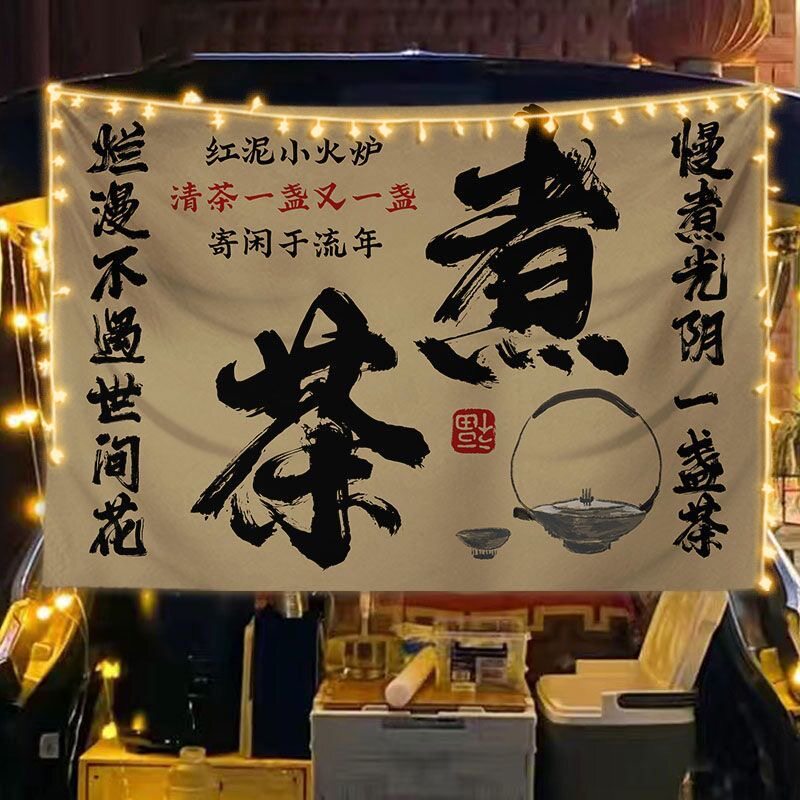 慢煮光阴一盏茶
煮茶
红泥小火炉
清茶一盏又一盏
寄闲于流年
烂漫不過世间花